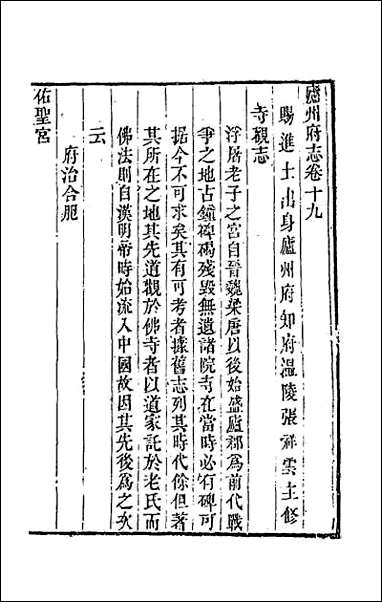 廬州府志卷十九
賜進士出身廬州府知府溫陵張祥雲主修
寺觀志
浮屠老子之宮自晉魏梁唐以後始盛廬郡爲前代戰
爭之地古鐘碑碣殘毀無遺諸院寺在當時必有碑可
据今不可求矣其有可考者據舊志列其時代餘但著
其所在之地其先道觀於佛寺者以道家託於老氏而
佛法則自漢明帝時始流入中國故因其先後爲之次
云
府治合肥
佑聖宮